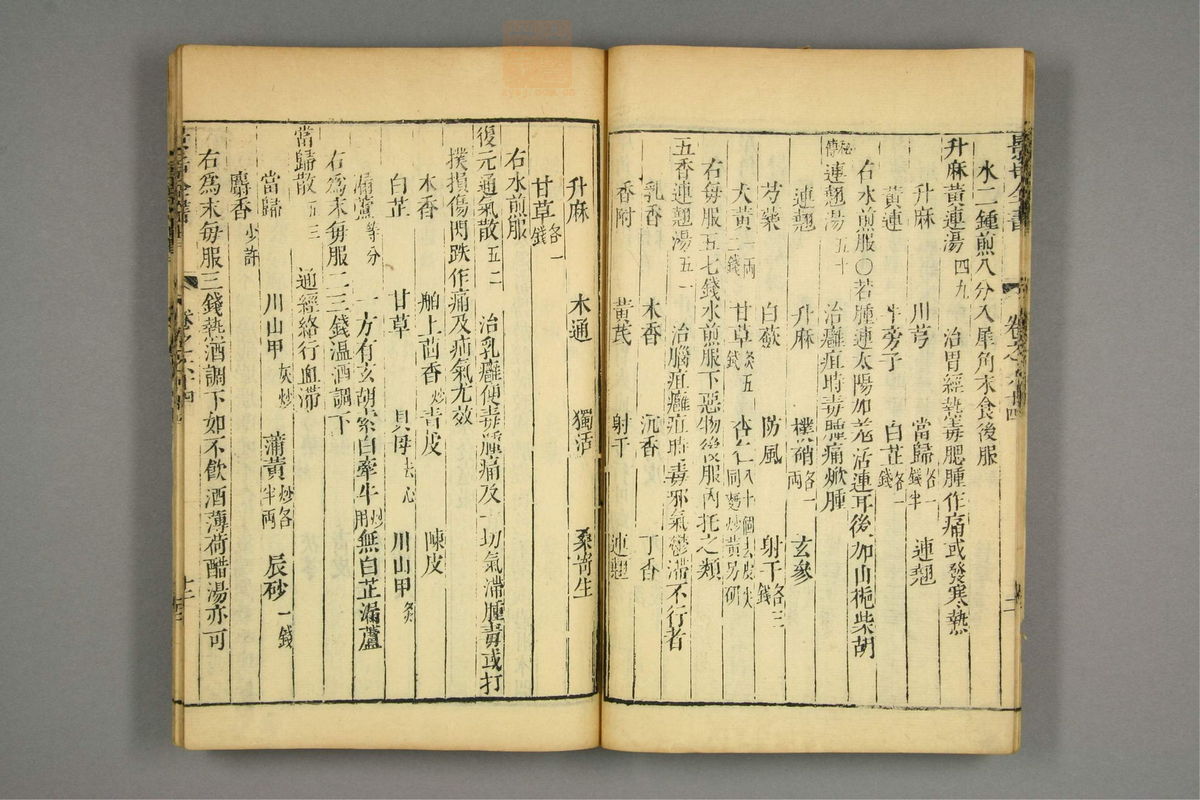 水二鍾煎八分入犀角末食後服
升麻黃連湯 四九 治胃經熱毒腮腫作痛或發寒熱
升麻 川芎 當歸各一錢半 連翹
黃連 牛旁子 白芷各一錢
秘傳連翹湯 五十 治癰疽時毒腫痛焮腫
連翹 升麻 樸硝各一兩 玄參
芍藥 白蘞 防風 射干各三錢
大黃一兩二錢 甘草炙五錢 杏仁八十個去皮尖同麪炒黃另研
右水煎服○若腫連太陽加羌活連耳後加山梔柴胡
右每服五七錢水煎服下惡物後服內托之類
五香連翹湯 五一 治腦疽癰疽時毒邪氣鬱滯不行者
乳香 木香 沉香 丁香
香附 黃芪 射干 連翹
升麻 木通 獨活 桑寄生
甘草各一錢
右水煎服
復元通氣散 五二 治乳癰便毒腫痛及一切氣滯腫毒或打
撲損傷閃跌作痛及疝氣尤效
木香 舶上茴香炒 青皮 陳皮
白芷 甘草 貝母去心 川山甲炙
漏蘆等分 一方有玄胡索白牽牛炒用無白芷漏蘆
右爲末每服二三錢溫酒調下
當歸散 五三 通經絡行血滯
當歸 川山甲灰炒 蒲黃炒各半兩 辰砂一錢
麝香少許
右爲末每服三錢熱酒調下如不飲酒薄荷醋湯亦可